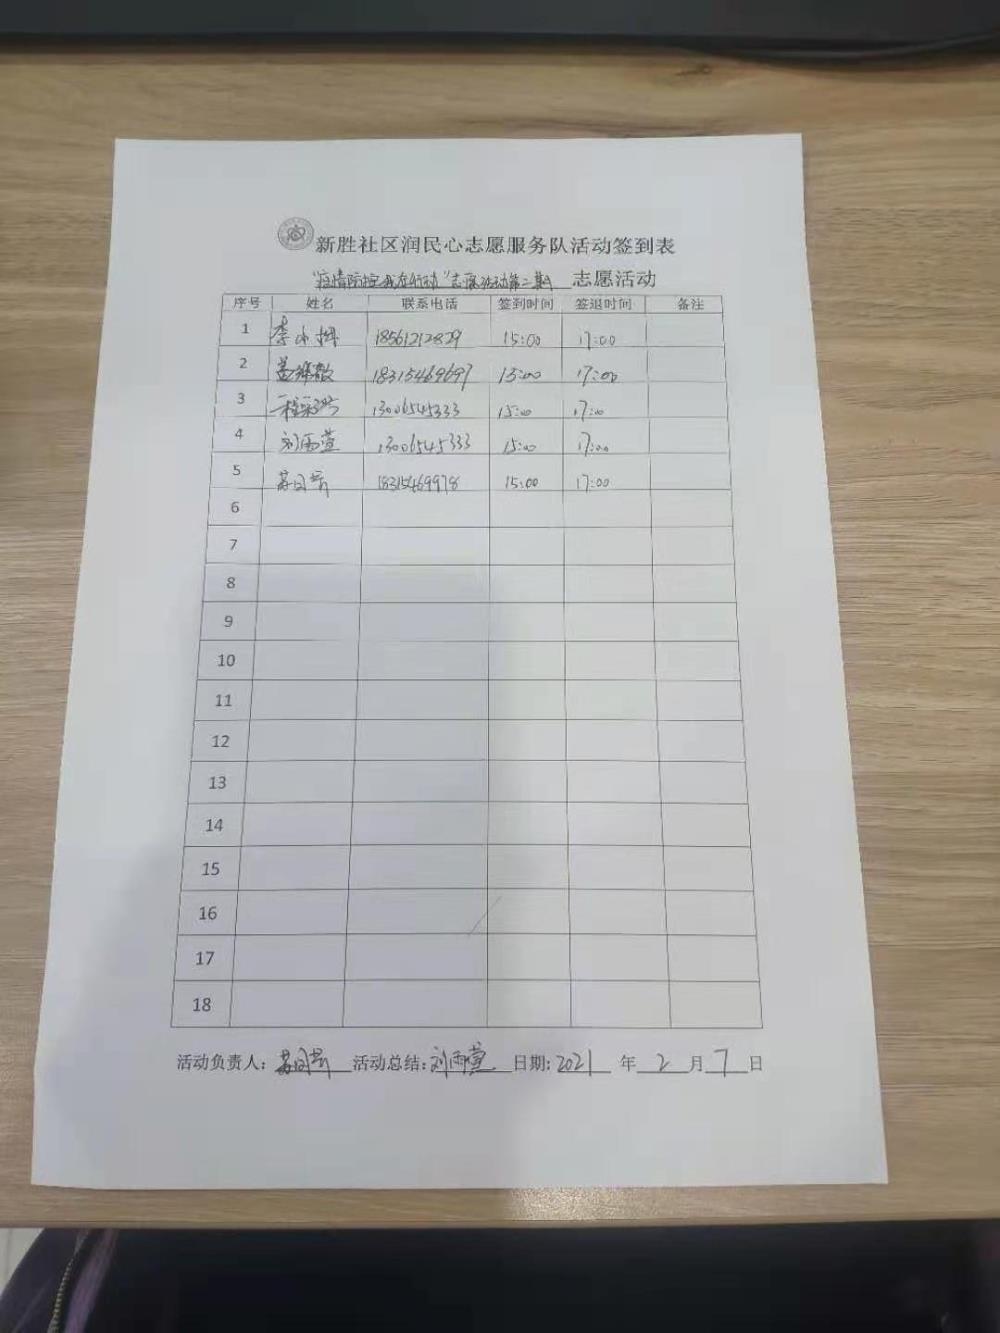 新胜社区润民心志愿服务队活动签到表
"疫情防控我在行动"志愿活动第二期 志愿活动
序号 姓名 联系电话 签到时间 签退时间 备注
1 李小 18561212829 15:00 17:00
2 18315469697 15:00 17:00
3 13006545333 15:00 17:00
4 刘雨萱 13006545333 15:00 17:00
5 18315469978 15:00 17:00
6
7
8
9
10
11
12
13
14
15
16
17
18
活动负责人: 活动总结:刘雨萱 日期:2021 年 2 月 7 日